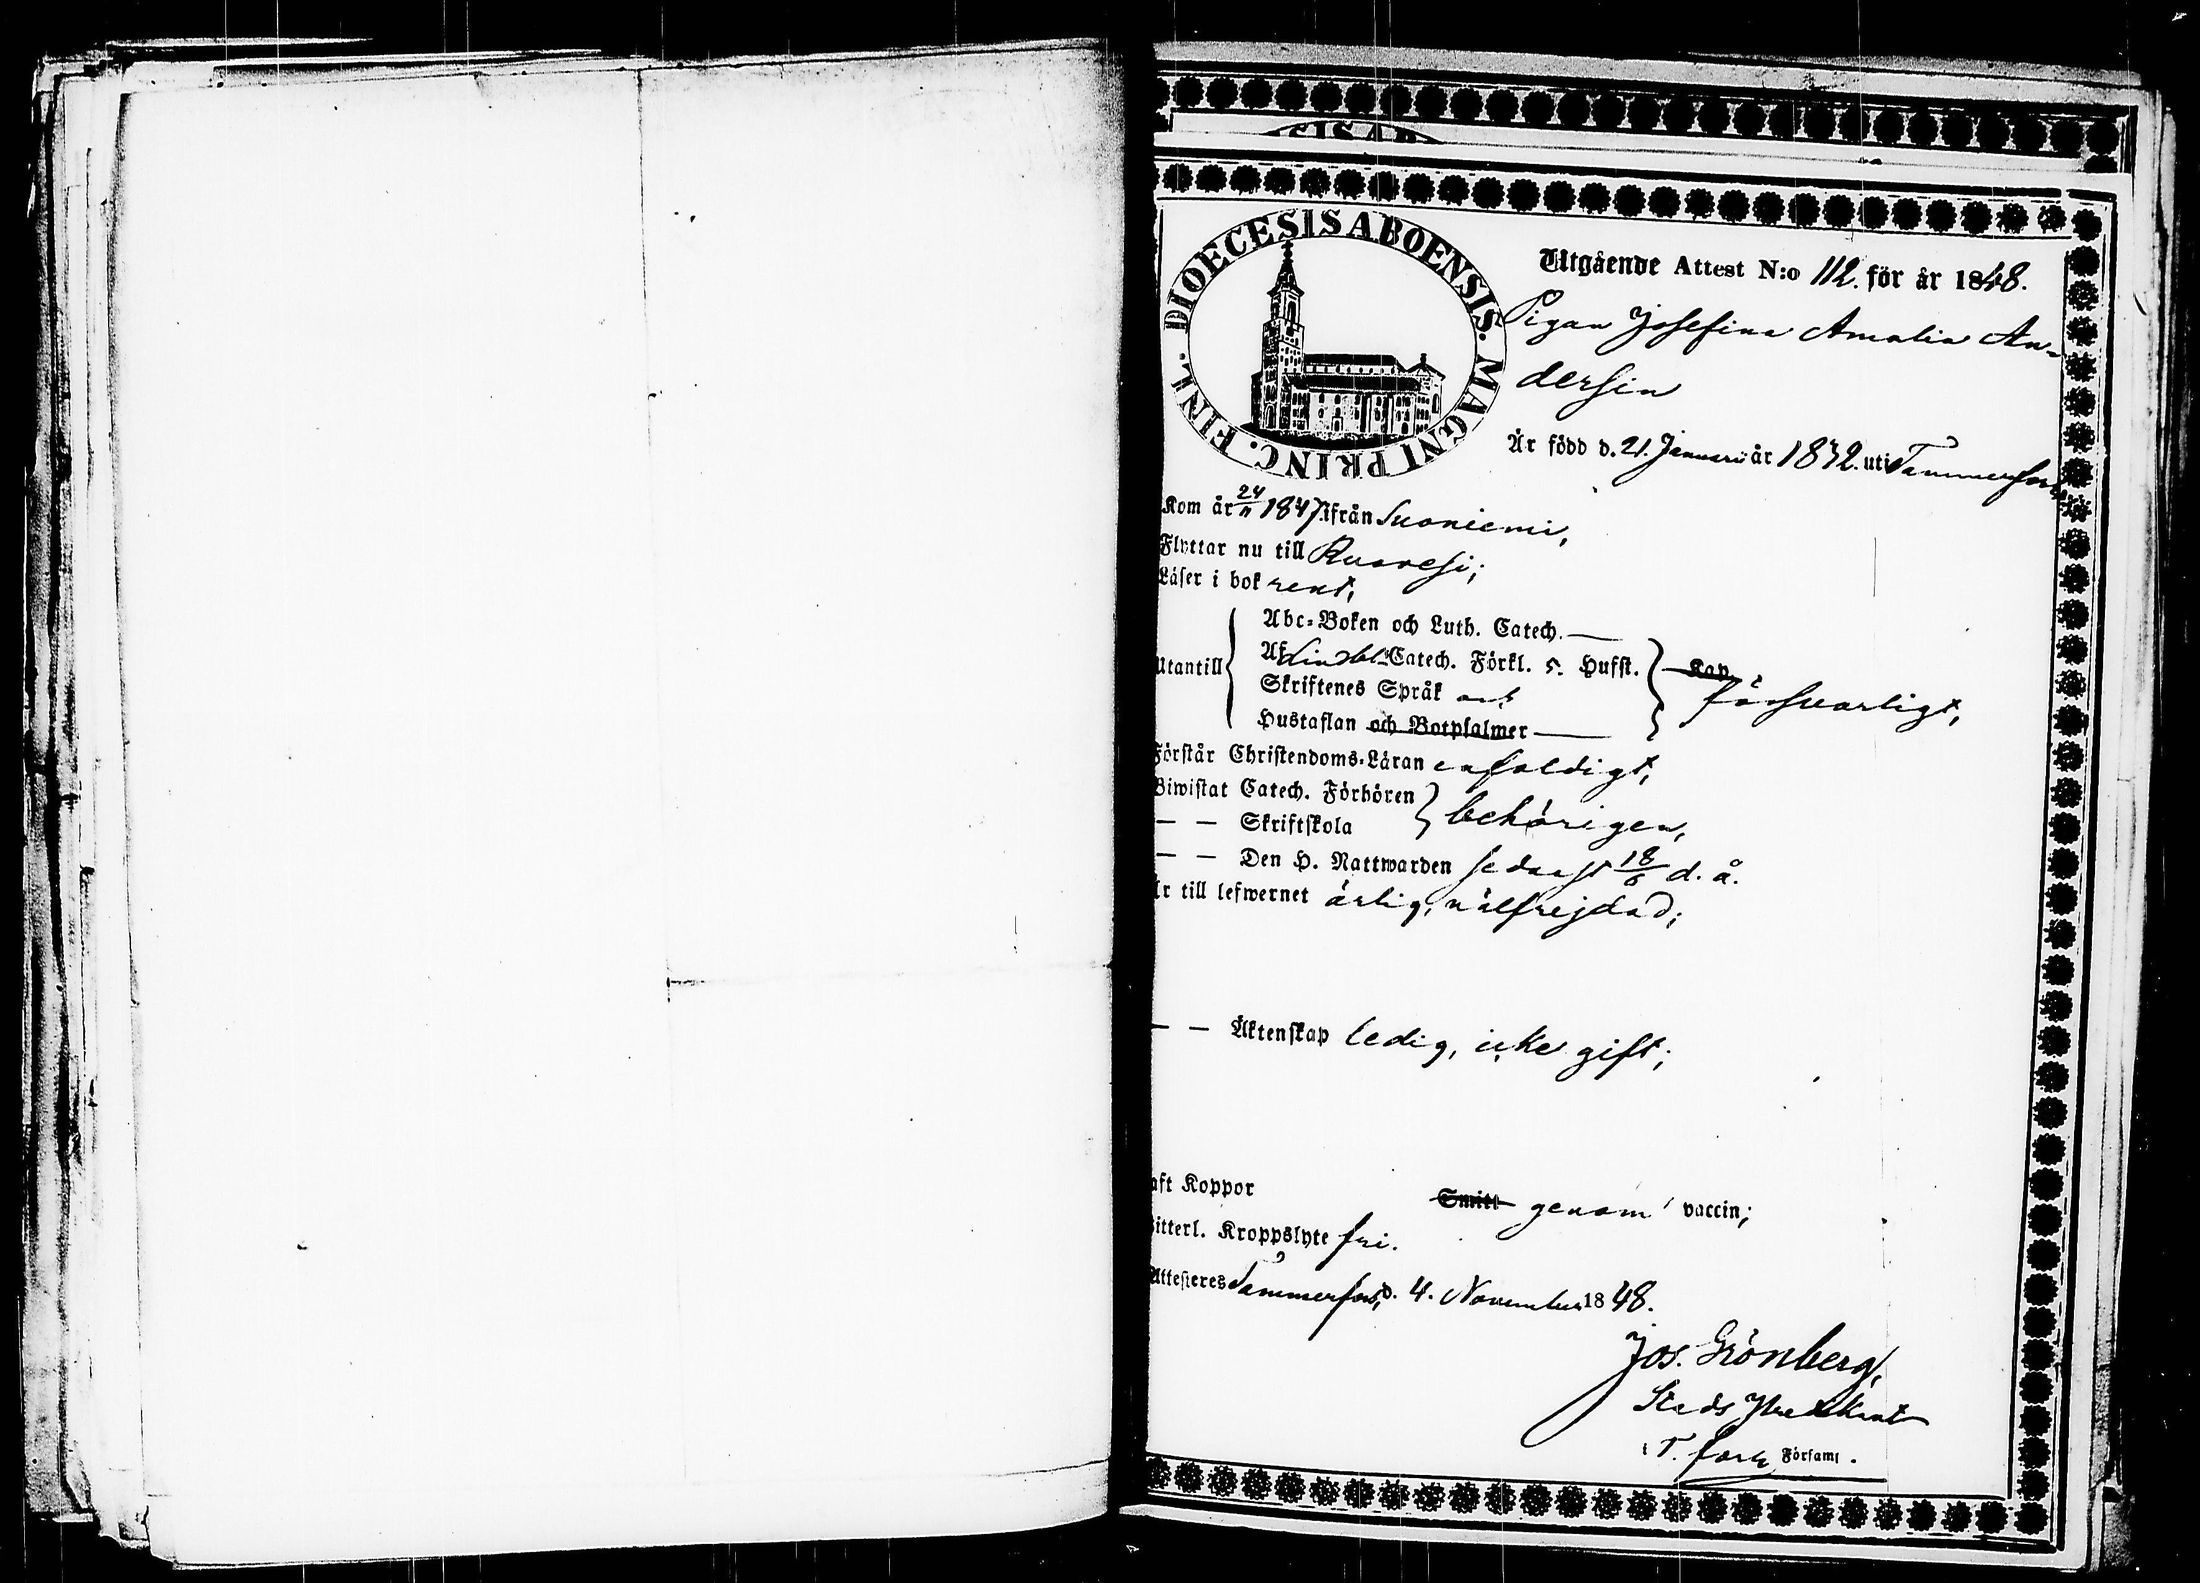 ESIS AB
DIOECESIS ABOENSIS. MAGNI PRINC. FINL.
Utgående Attest N:o 112. för år 1848.
Pigan Josefina Amalia An-
dersin
Är född d. 21. Januari år 1832. uti Tammerfors
Kom år 24/11 1847 ifrån Suoniemi,
Flyttar nu till Ruovesi;
Läser i bok rent,
Abc-Boken och Luth. Catech.
Utantill Af Lindbl. Catech. Förkl. 5. Hufst. Kap.
Skriftenes Språk och försvarligt,
Hustaflan och Botpsalmer
Förstår Christendoms-Läran enfaldigt,
Biwistat Catech. Förhören
— — Skriftskola behörigen,
— — Den H. Nattwarden sednast 18/6 d. å.
Är till lefwernet ärlig, välfrejdad;
— — Äktenskap ledig, icke gift;
aft Koppor Smitt genom vaccin;
itterl. Kroppslyte fri.
Attesteres Tammerfors, d. 4. November 1848.
Jos. Grönberg,
Stads Predikant
i T. fors Församl.